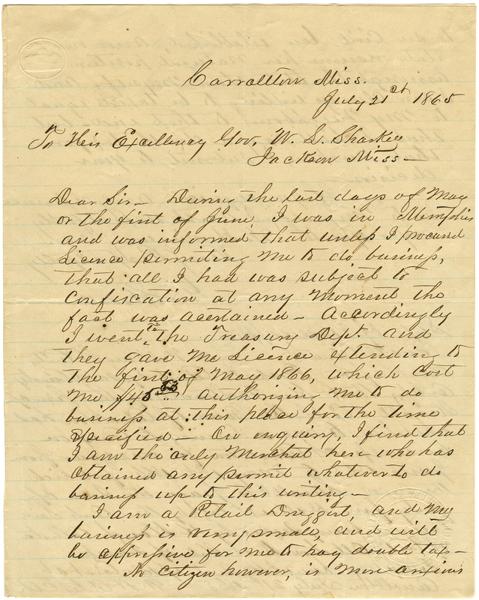 Carrollton Miss.
July 21st 1865
To His Excellency Gov. W. L. Sharkey
Jackson Miss—
Dear Sir— During the last days of May
or the first of June, I was in Memphis
and was informed that unless I procured
Licence permiting me to do business,
that all I had was subject to
Confiscation at any moment the
fact was acertained— Accordingly
I went to the Treasury Dept. and
they gave me Licence extending to
the first of May 1866, which cost
me authorizing me to do
business at this place for the time
specified— On enquiry, I find that
I am the only Merchat here who has
obtained any permit whatever to do
business up to this writing—
I am a Retail Druggist, and my
business is very small, and will
be oppressive for me to pay double tax—
No citizen however, is more anxious